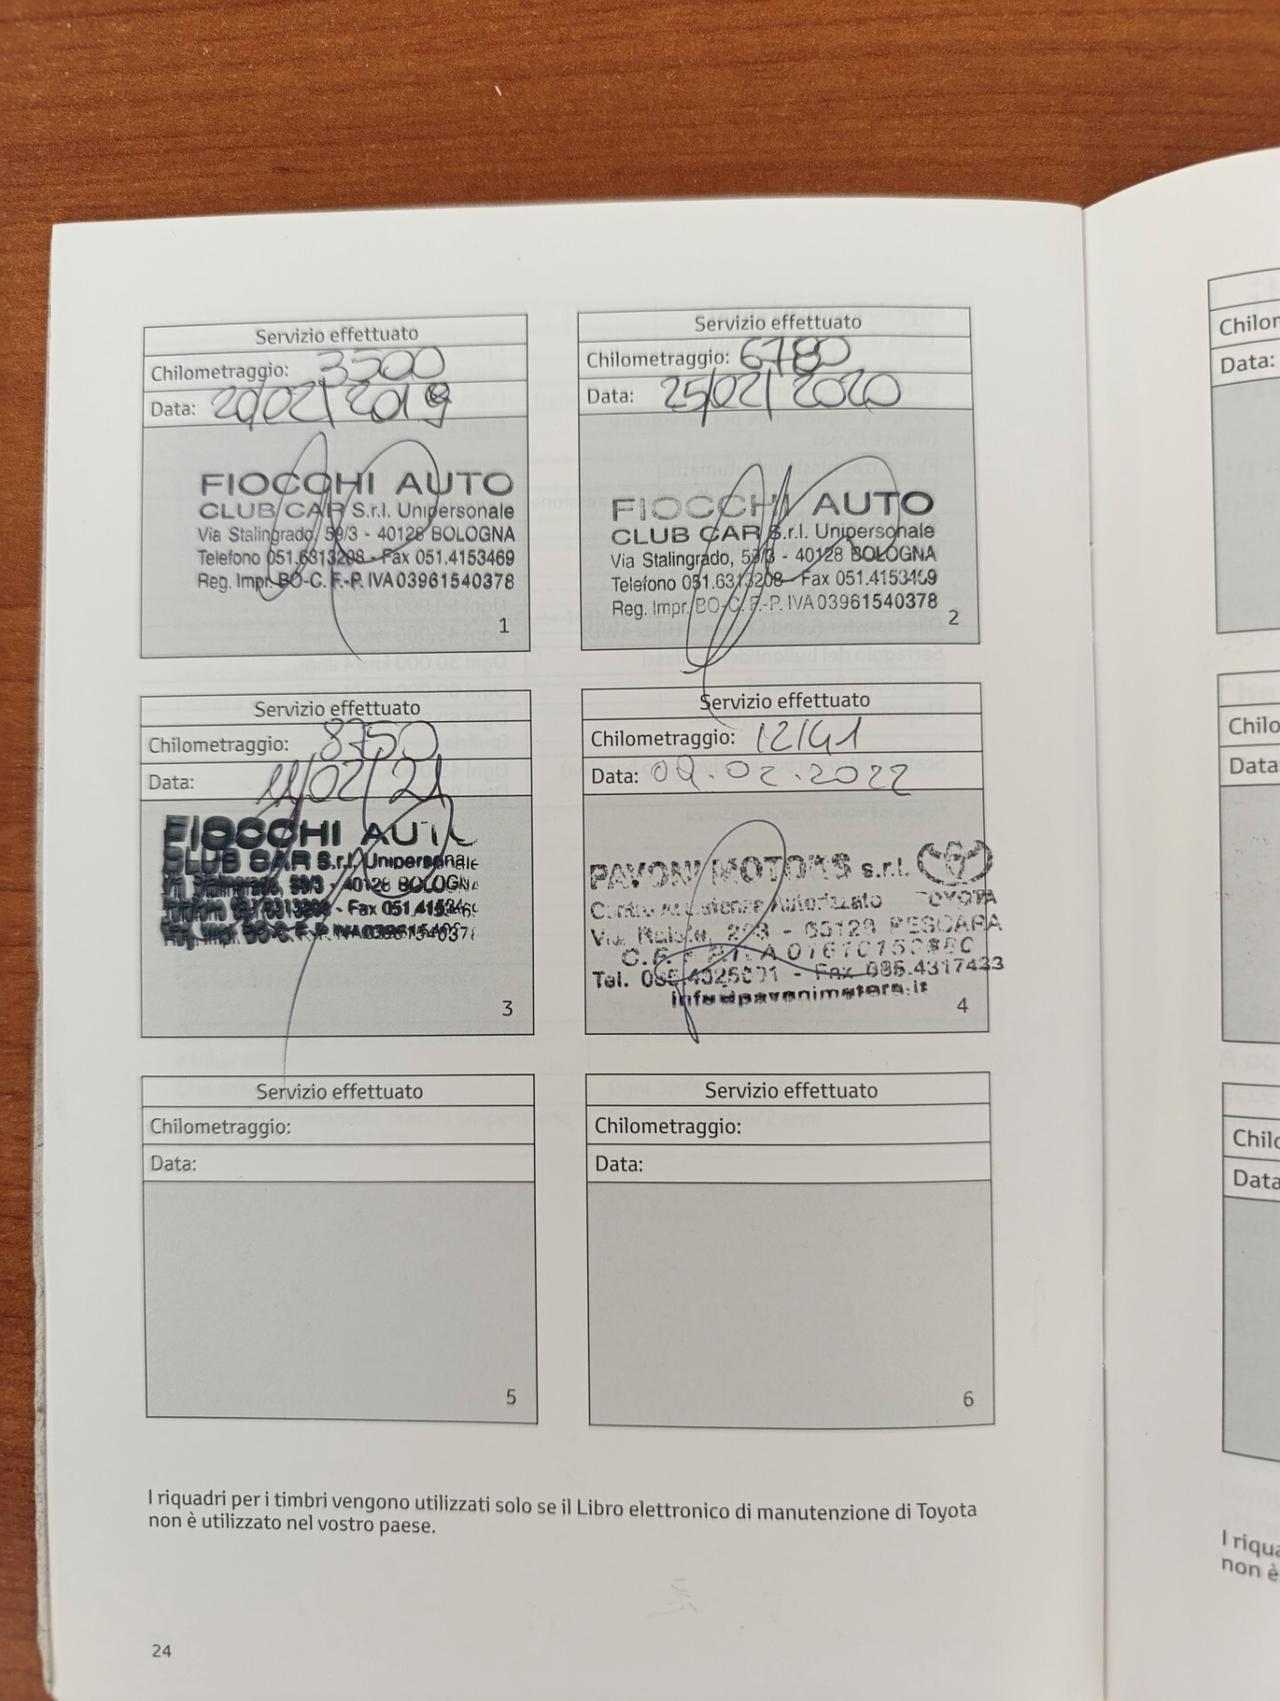 Servizio effettuato
Chilometraggio: 3500
Data: 20/02/2019
FIOCCHI AUTO
CLUB CAR S.r.l. Unipersonale
Via Stalingrado, 59/3 - 40128 BOLOGNA
Telefono 051.6313208 - Fax 051.4153469
Reg. Impr. BO-C. F.-P. IVA 03961540378
1
Servizio effettuato
Chilometraggio: 6780
Data: 25/02/2020
FIOCCHI AUTO
CLUB CAR S.r.l. Unipersonale
Via Stalingrado, 59/3 - 40128 BOLOGNA
Telefono 051.6313208 - Fax 051.4153469
Reg. Impr. BO-C. F.-P. IVA 03961540378
2
Servizio effettuato
Chilometraggio: 8750
Data: 11/02/21
FIOCCHI AUTO
CLUB CAR S.r.l. Unipersonale
59/3 - 40128 BOLOGNA
Telefono 051.6313208 - Fax 051.4153469
Reg. Impr. BO-C. F.-P. IVA 03961540378
3
Servizio effettuato
Chilometraggio: 12141
Data: 09.02.2022
PAVONI MOTORS s.r.l.
Centro Assistenza Autorizzato TOYOTA
Via - 65128 PESCARA
C.F. - P.IVA
Tel. - Fax 085.4317433
info@pavonimotors.it
4
Servizio effettuato
Chilometraggio:
Data:
5
Servizio effettuato
Chilometraggio:
Data:
6
I riquadri per i timbri vengono utilizzati solo se il Libro elettronico di manutenzione di Toyota
non è utilizzato nel vostro paese.
24
Data:
Data
Data
I riqua
non è